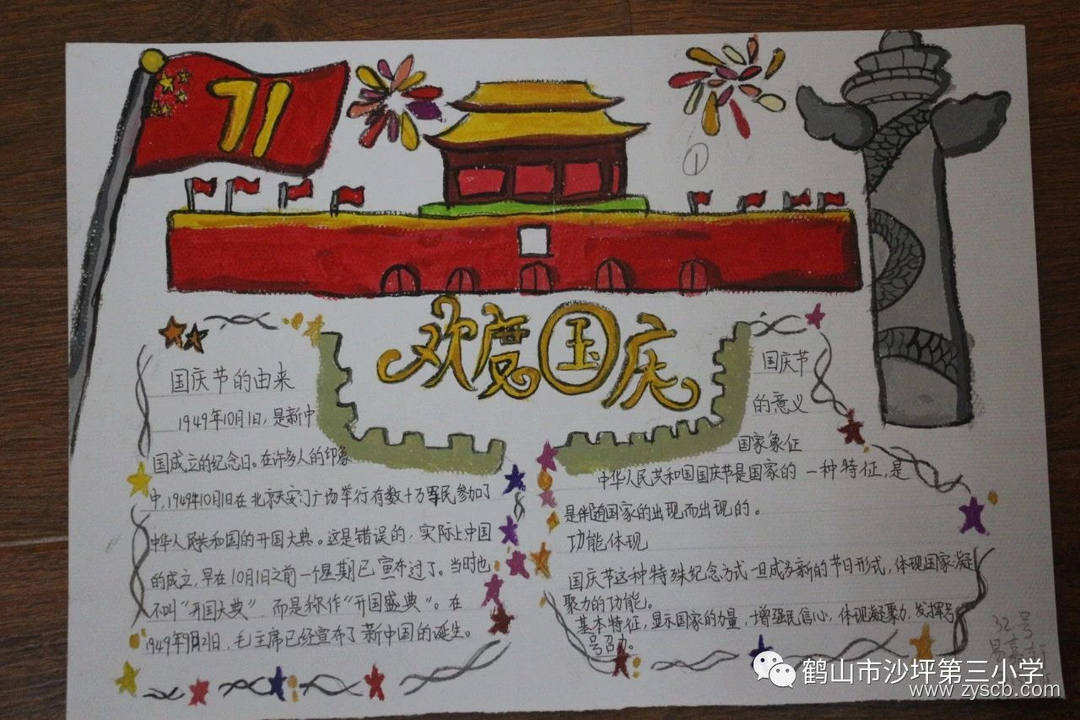 71
①
欢度国庆
国庆节的由来
1949年10月1日,是新中
国成立的纪念日。在许多人的印象
中,1949年10月1日在北京天安门广场举行有数十万军民参加了
中华人民共和国的开国大典。这是错误的,实际上中国
的成立,早在10月1日之前一个星期已宣布过了。当时也
不叫“开国大典”,而是称作“开国盛典”。在
1949年9月21日,毛主席已经宣布了新中国的诞生。
国庆节
的意义
国家象征
中华人民共和国国庆节是国家的一种特征,是
是伴随国家的出现而出现的。
功能体现
国庆节这种特殊纪念方式一旦成为新的节日形式,体现国家凝
聚力的功能。
基本特征,显示国家的力量,增强民信心,体现凝聚力,发挥号
号召力。
32号
鹤山市沙坪第三小学
www.zyscb.com